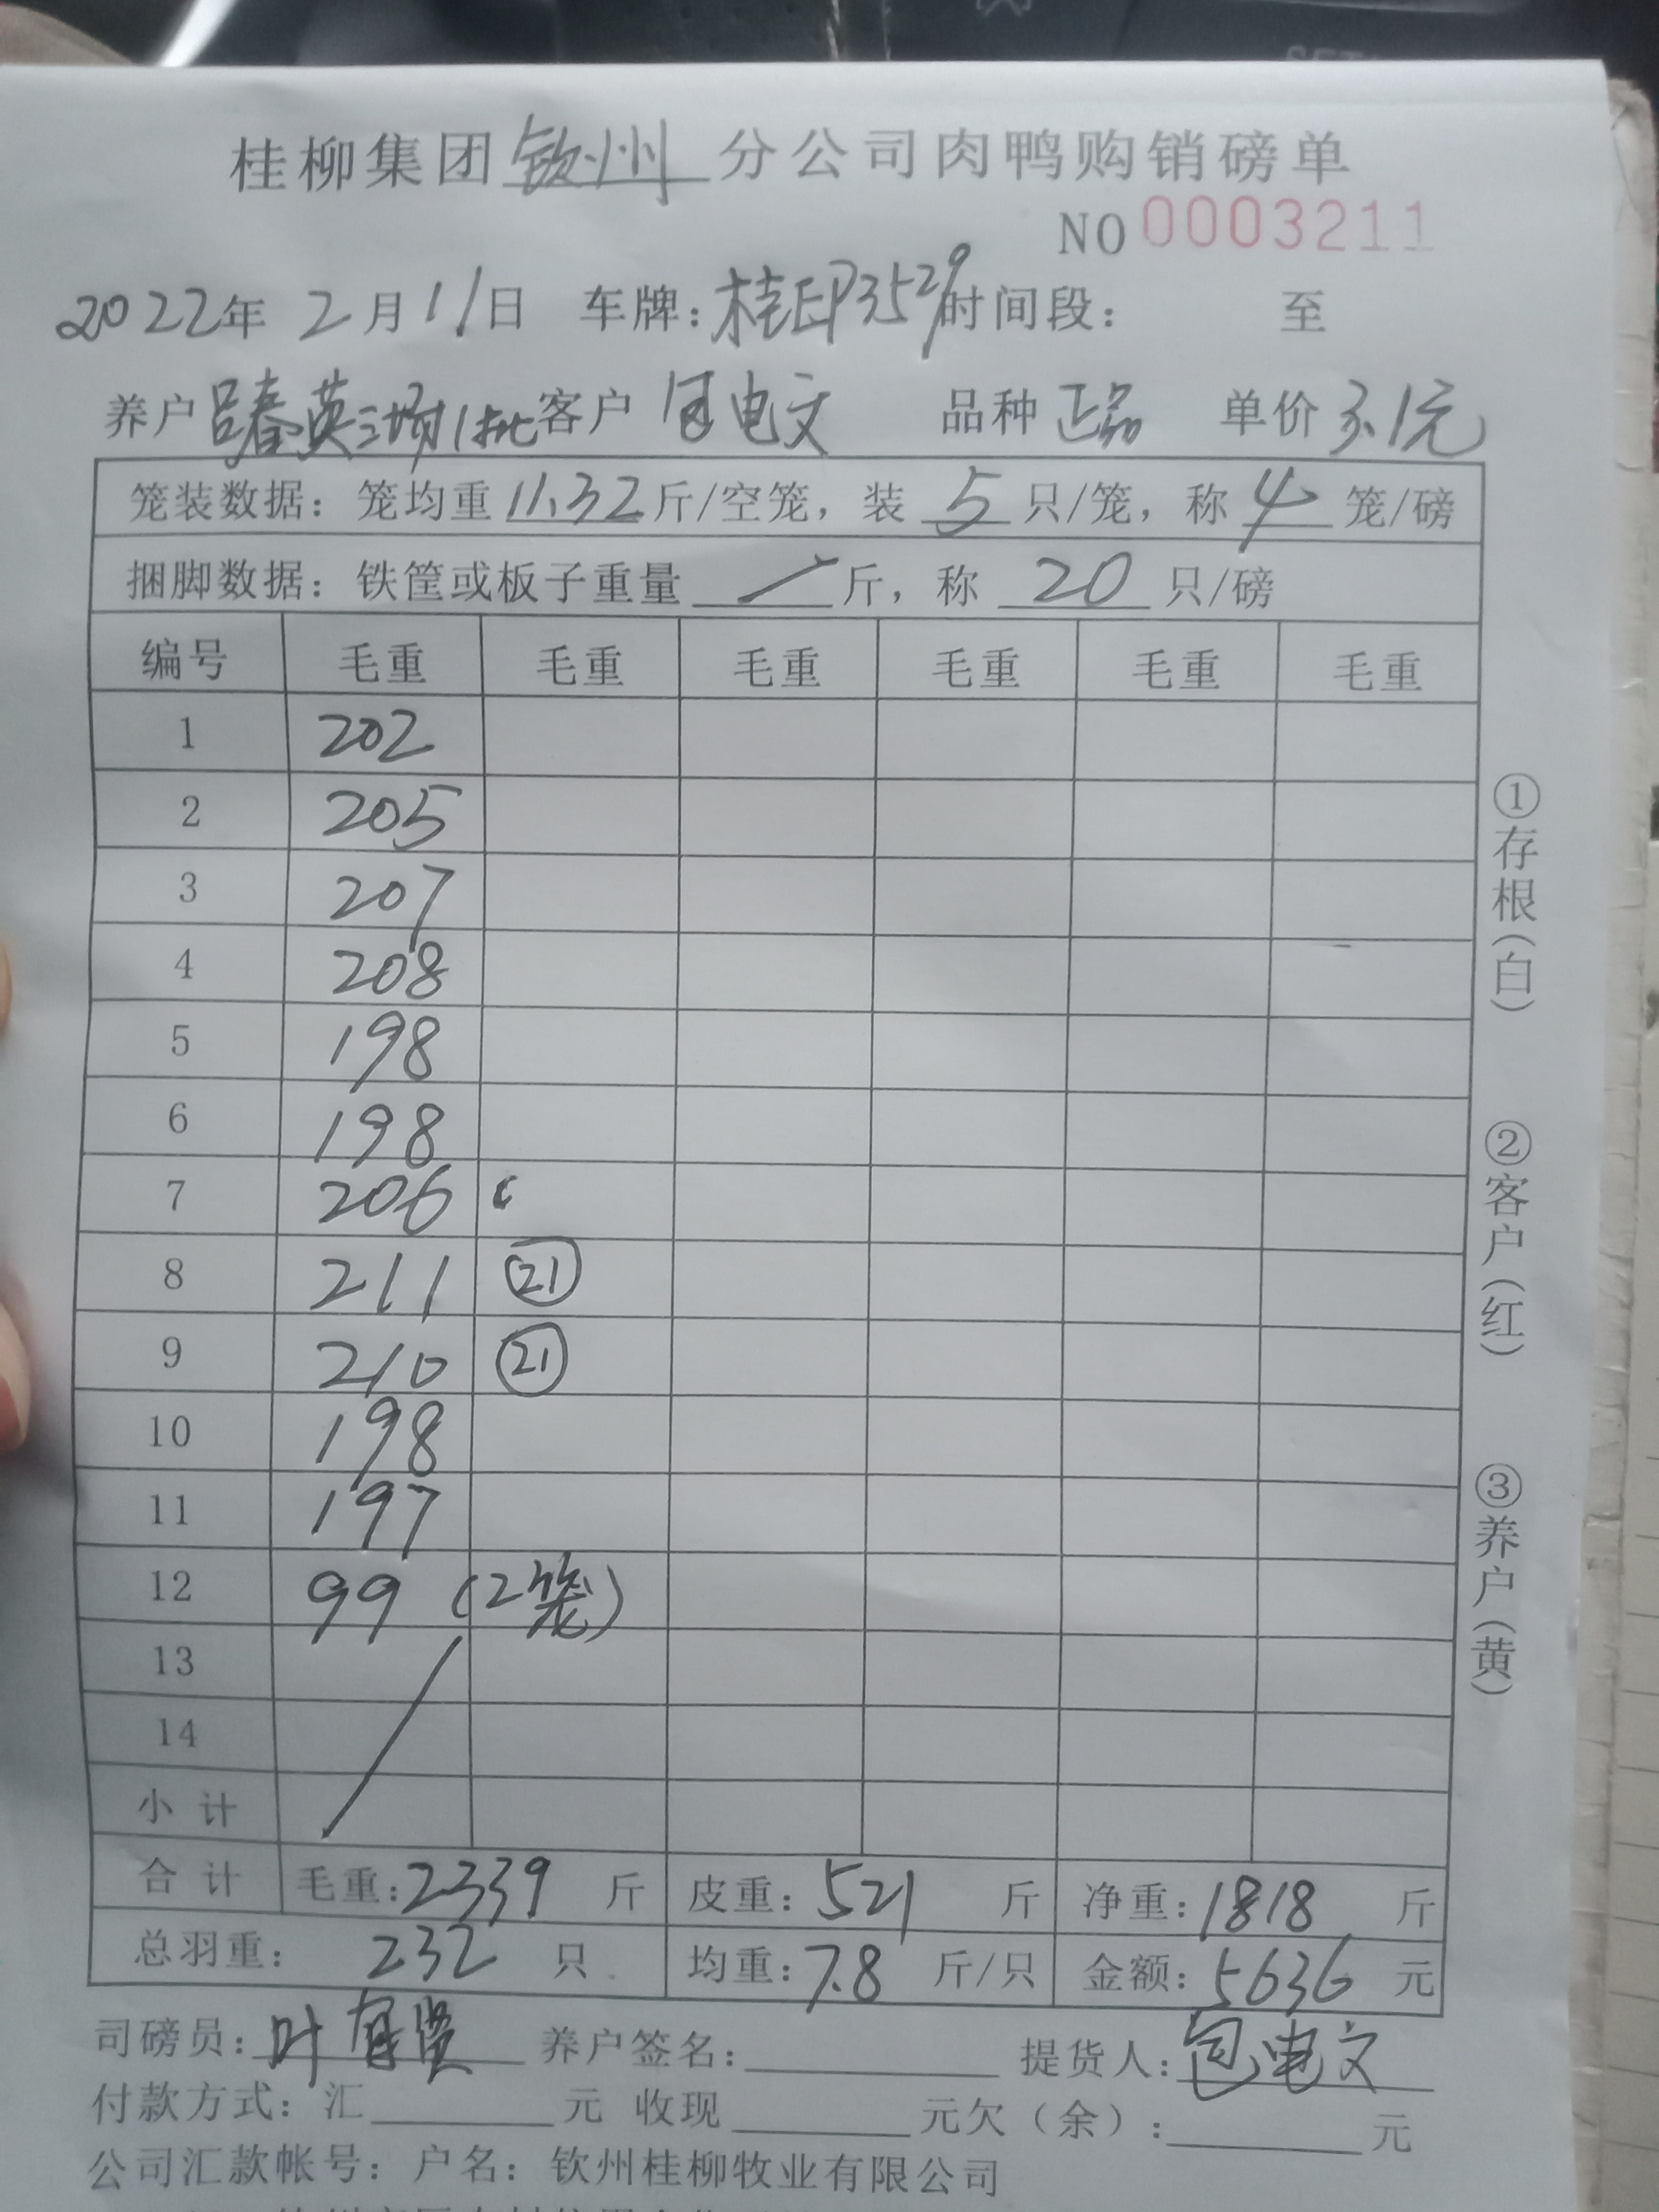 桂柳集团钦州分公司肉鸭购销磅单
NO 0003211
2022年 2月11日 车牌: 时间段: 至
养户 吕春英三场1批 客户 包电文 品种 正品 单价 3.1元
笼装数据: 笼均重 11.32 斤/空笼, 装 5 只/笼, 称 4 笼/磅
捆脚数据: 铁筐或板子重量 / 斤, 称 20 只/磅
编号 毛重 毛重 毛重 毛重 毛重 毛重
1 202
2 205
3 207
4 208
5 198
6 198
7 206
8 211 ㉑
9 210 ㉑
10 198
11 197
12 99 (2笼)
13
14
小计
合计 毛重: 2339 斤 皮重: 521 斤 净重: 1818 斤
总羽重: 232 只 均重: 7.8 斤/只 金额: 5636 元
司磅员: 叶 养户签名: 提货人: 包电文
付款方式: 汇 元 收现 元欠(余): 元
公司汇款帐号: 户名: 钦州桂柳牧业有限公司
①存根(白)
②客户(红)
③养户(黄)